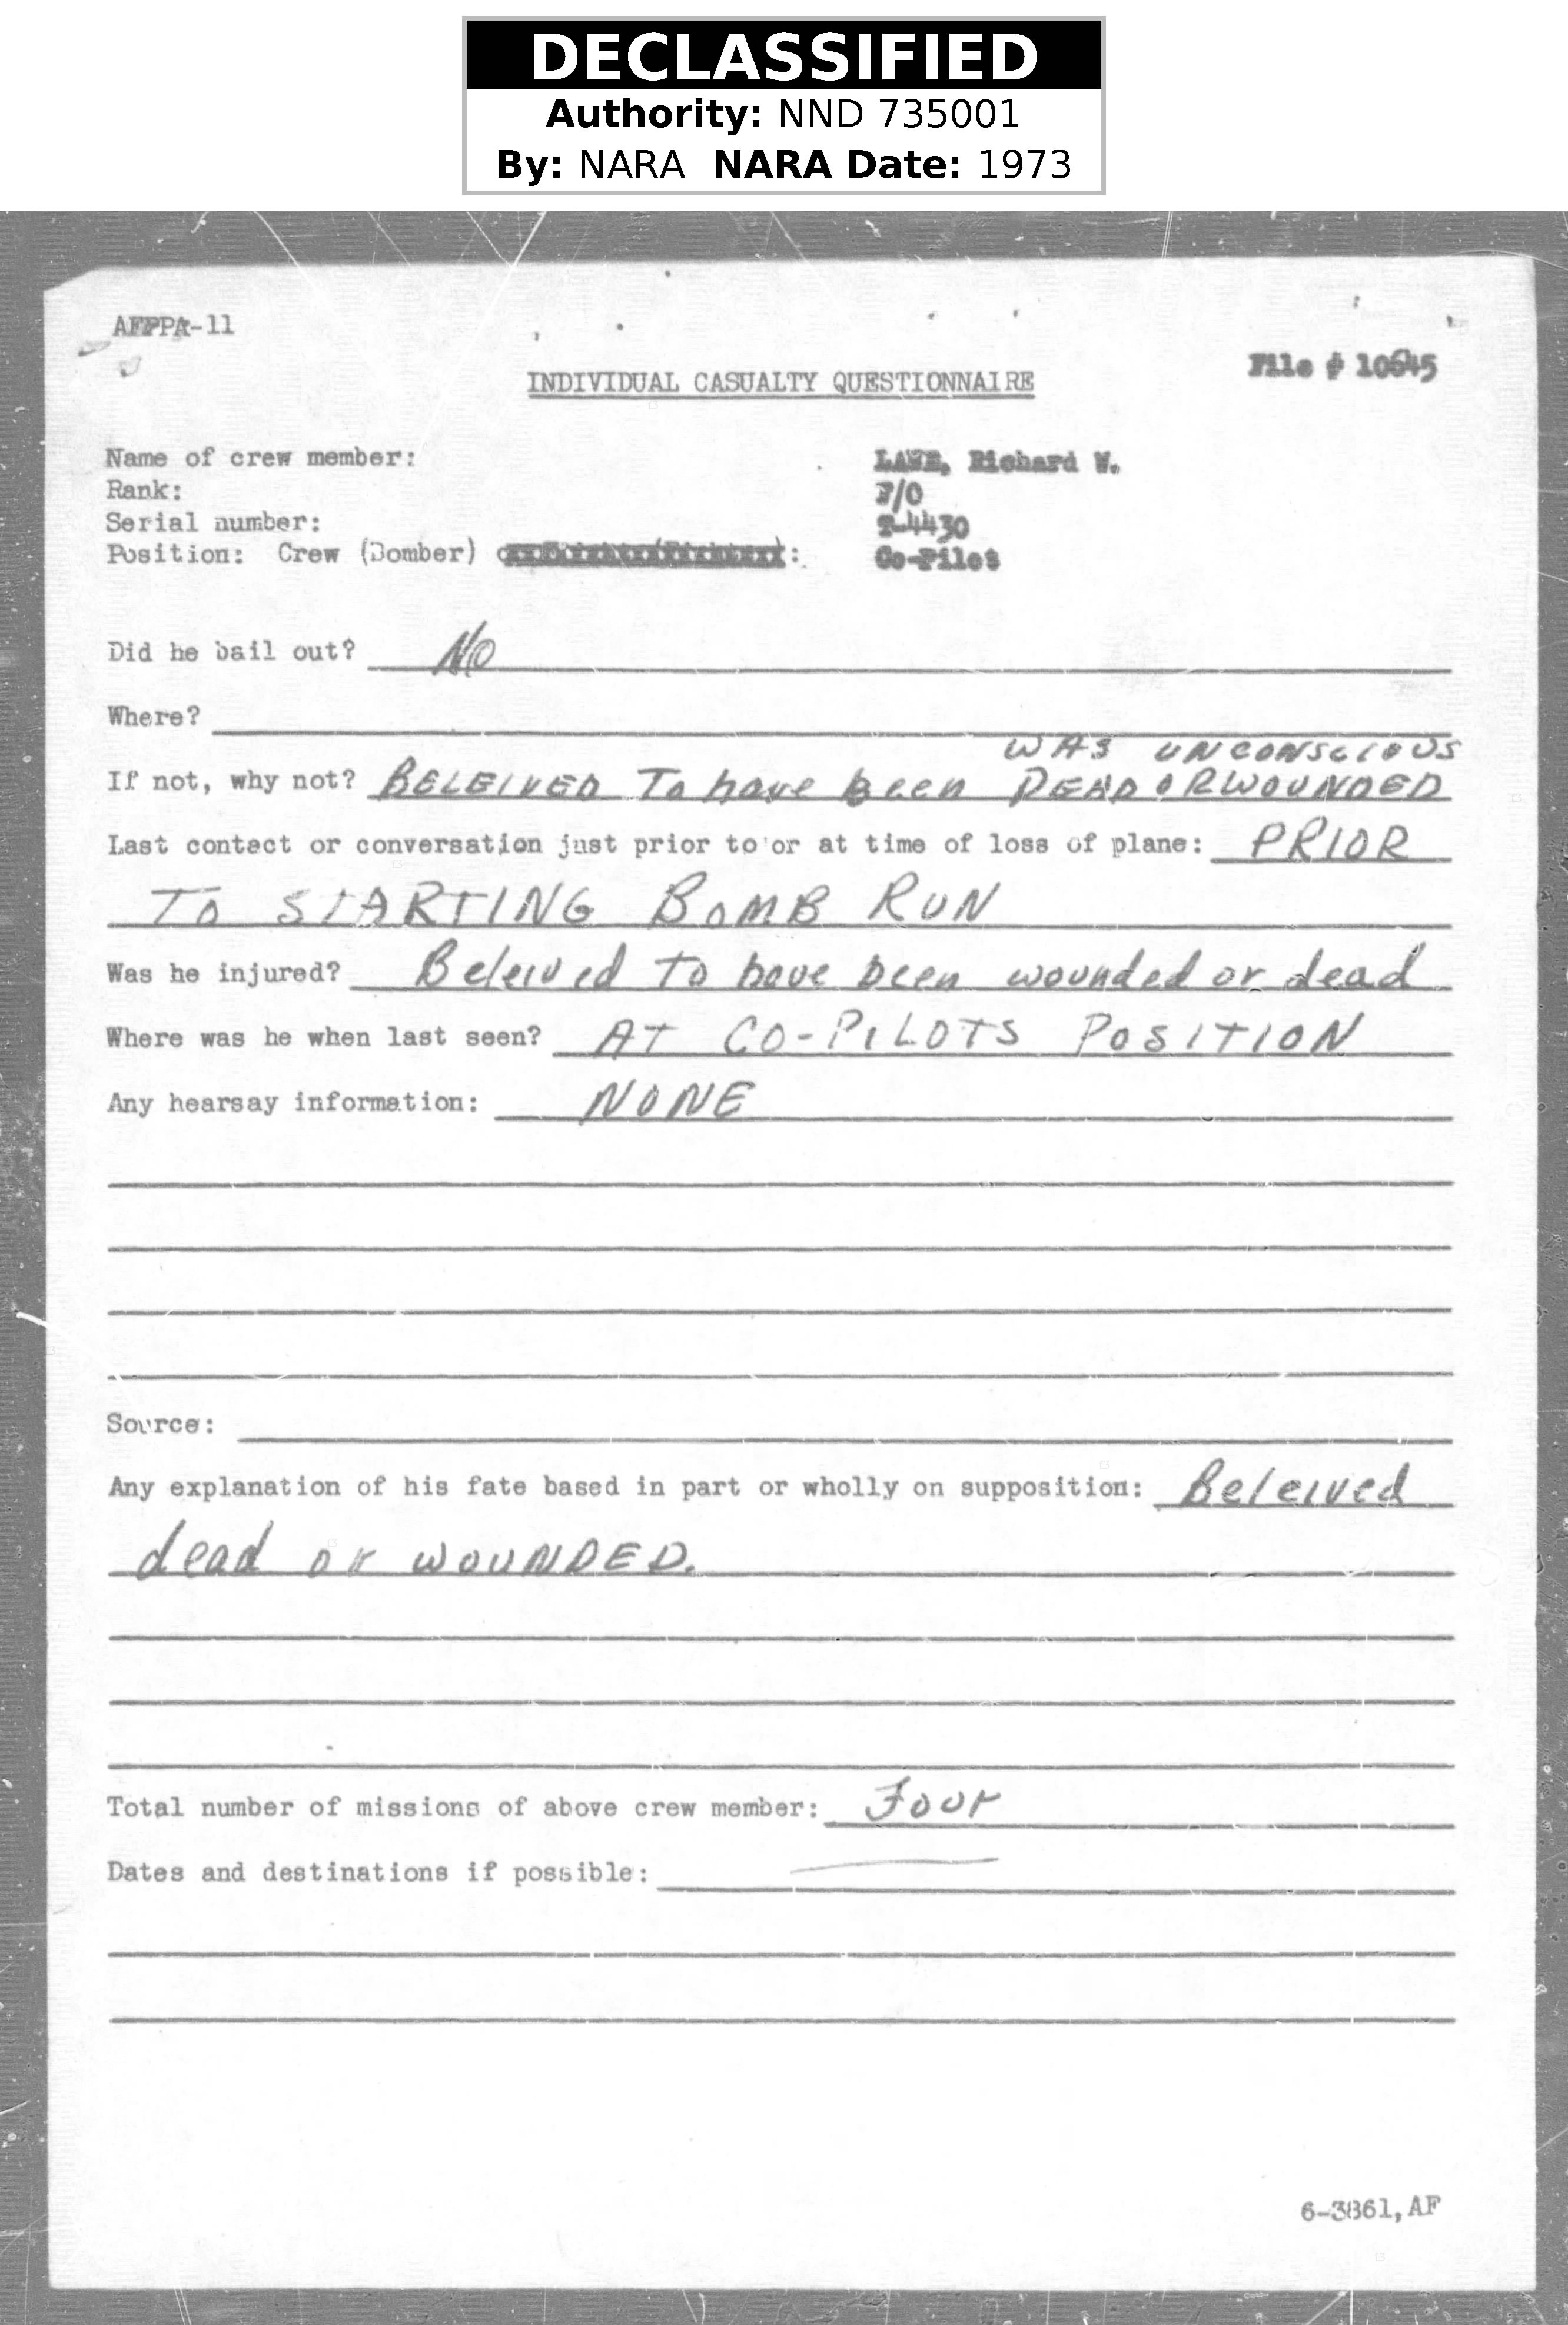 DECLASSIFIED
Authority: NND 735001
By: NARA NARA Date: 1973
AFPPA-11
File # 10645
INDIVIDUAL CASUALTY QUESTIONNAIRE
Name of crew member: Richard W.
Rank: F/O
Serial number: T-4430
Position: Crew (Bomber) : Co-Pilot
Did he bail out? No
Where?
WAS UNCONSCIOUS
If not, why not? BELEIVED To have been DEAD OR WOUNDED
Last contact or conversation just prior to or at time of loss of plane: PRIOR
TO STARTING BOMB RUN
Was he injured? Beleived to have been wounded or dead
Where was he when last seen? AT CO-PILOTS POSITION
Any hearsay information: NONE
Source:
Any explanation of his fate based in part or wholly on supposition: Beleived
dead or WOUNDED.
Total number of missions of above crew member: Four
Dates and destinations if possible:
6-3861, AF